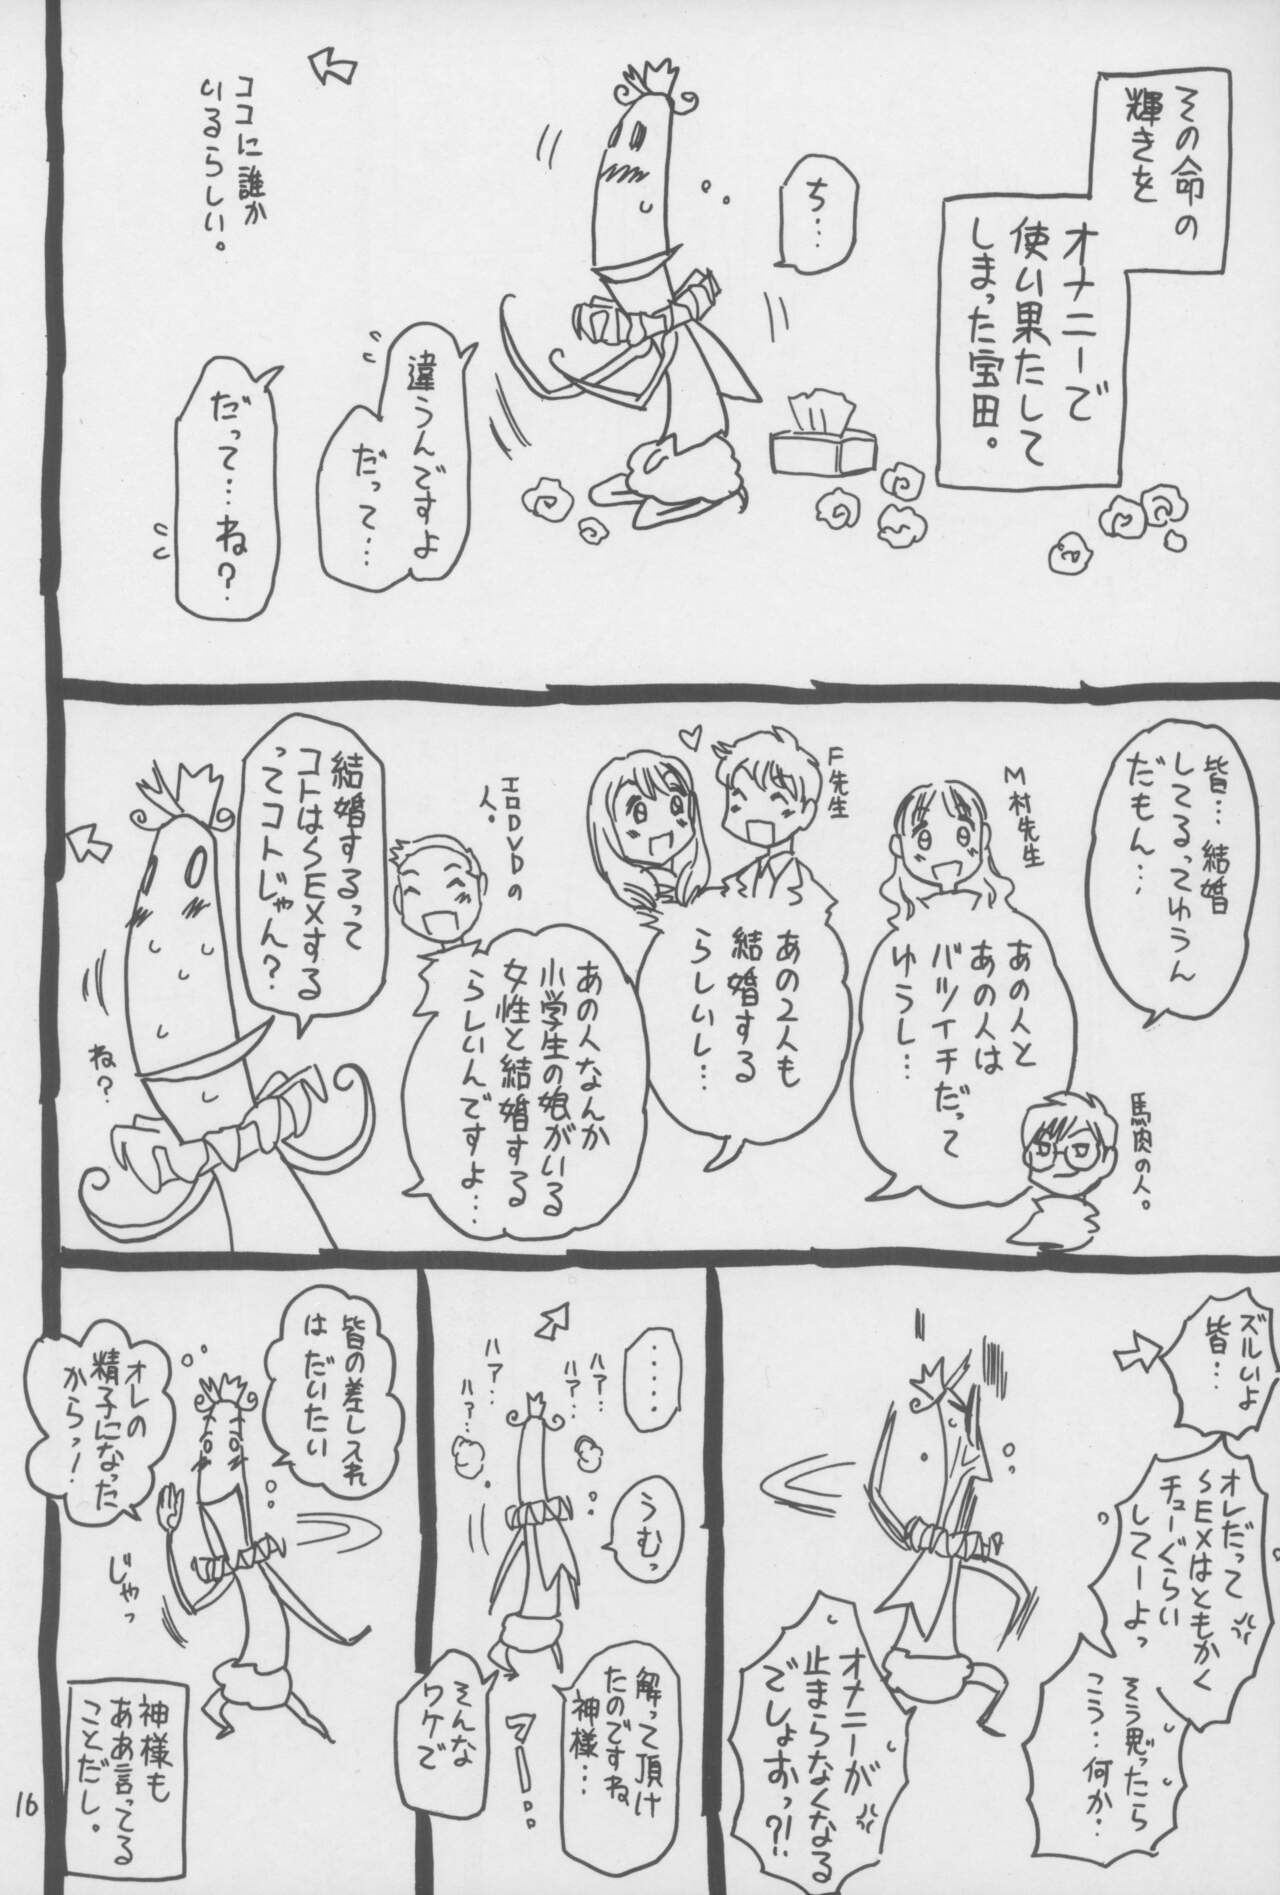 その命の
輝きを
オナニーで
使い果たして
しまった宝田。
ち…
違うんですよ
だって…
だって…ね?
ココに誰か
いるらしい。
皆…結婚
してるってゆうん
だもん…
馬肉の人。
M村先生
あの人と
あの人は
バツイチだって
ゆうし…
F先生
あの2人も
結婚する
らしいし…
エロDVDの
人。
あの人なんか
小学生の娘がいる
女性と結婚する
らしいんですよ…
結婚するって
コトはSEXする
ってコトじゃん?
ね?
ズルいよ
皆…
オレだって
SEXはともかく
チューぐらい
してーよっ
そう思ったら
こう…何か…
オナニーが
止まらなくなる
でしょおっ?!
……
うむっ
ハア…
ハア…
ハア…
ハア…
解って頂け
たのですね
神様…
そんな
ワケで
皆の差し入れ
は だいたい
オレの
精子になった
からっ!
じゃっ
神様も
ああ言ってる
ことだし。
16